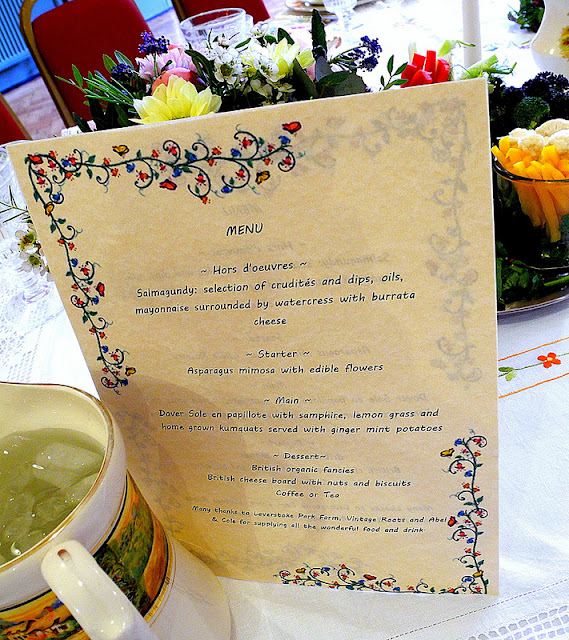 MENU
~ Hors d'oeuvres ~
Salmagundy: selection of crudités and dips, oils,
mayonnaise surrounded by watercress with burrata
cheese
~ Starter ~
Asparagus mimosa with edible flowers
~ Main ~
Dover Sole en papillote with samphire, lemon grass and
home grown kumquats served with ginger mint potatoes
~ Dessert~
British organic fancies
British cheese board with nuts and biscuits
Coffee or Tea
Many thanks to Laverstoke Park Farm, Vintage Roots and Abel
& Cole for supplying all the wonderful food and drink